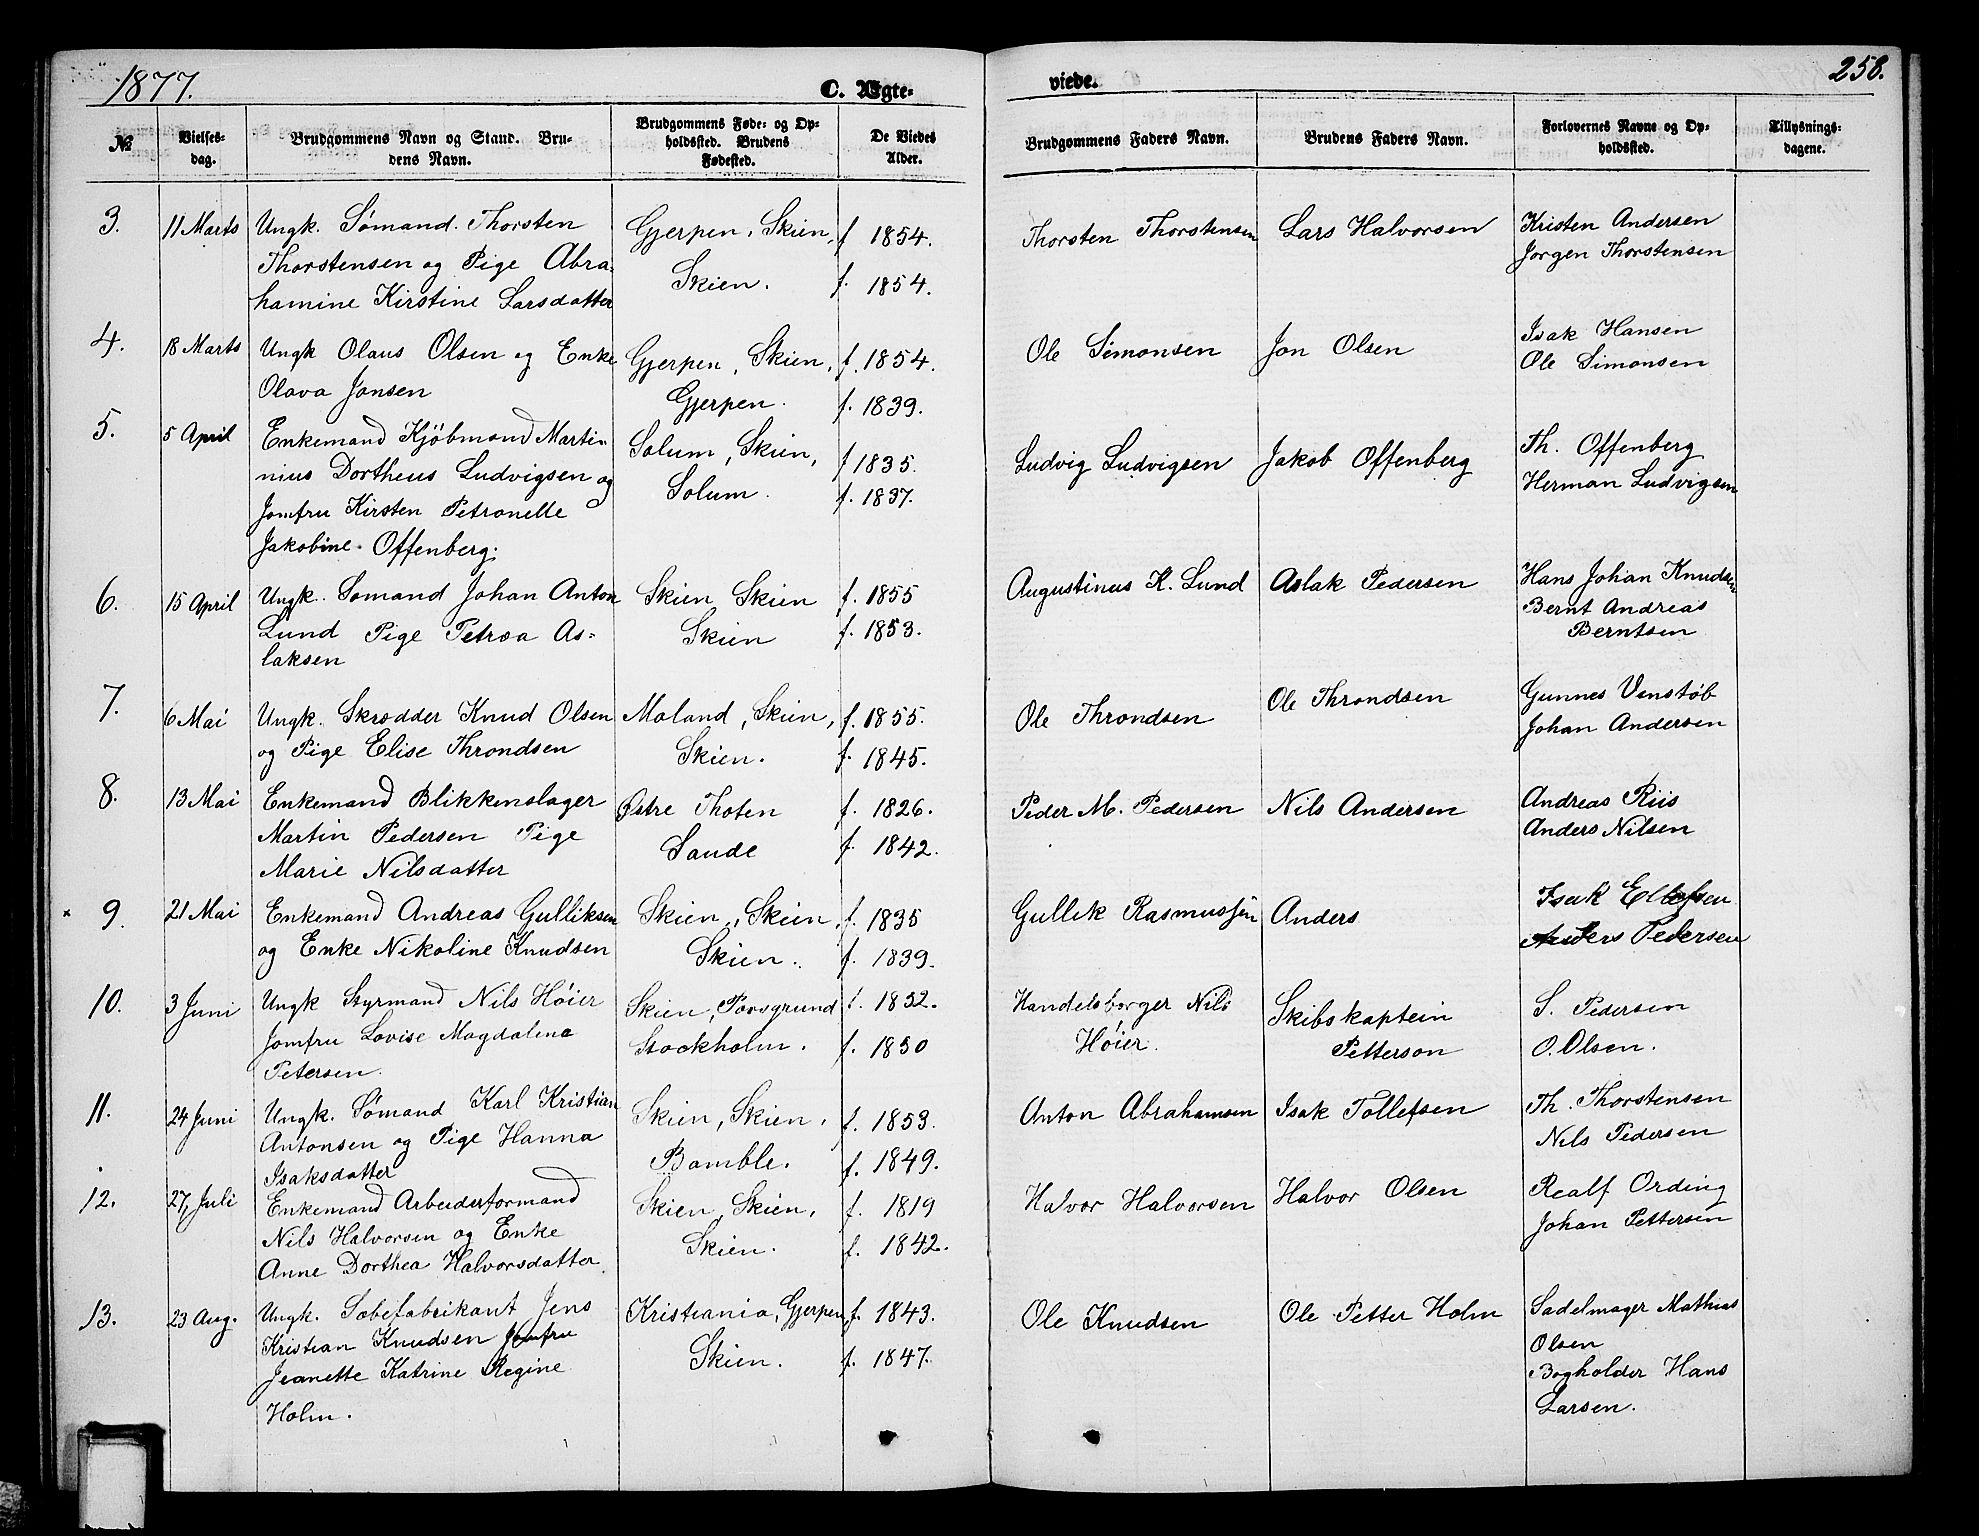 1877.
C. Ægte-
viede.
258.
№
Vielses-
dag.
Brudgommens Navn og Stand. Bru-
dens Navn.
Brudgommens Føde- og Op-
holdssted. Brudens
Fødested.
De Viedes
Alder.
Brudgommens Faders Navn.
Brudens Faders Navn.
Forlovernes Navne og Op-
holdssted.
Tillysnings-
dagene.
3.
11 Marts
Ungk. Sømand. Thorsten
Thorstensen og Pige Abra-
hamine Kirstine Larsdatter
Gjerpen, Skien,
Skien.
f. 1854.
f. 1854.
Thorsten Thorstensen
Lars Halvorsen
Kristen Andersen
Jørgen Thorstensen
4.
18 Marts
Ungk Olaus Olsen og Enke
Olava Jansen
Gjerpen, Skien,
Gjerpen.
f. 1854.
f. 1839.
Ole Simonsen
Jon Olsen
Isak Hansen
Ole Simonsen
5.
5 April
Enkemand Kjøbmand Marti-
nius Dortheus Ludvigsen og
Jomfru Kirsten Petronelle
Jakobine Offenberg.
Solum, Skien,
Solum.
f 1835.
f. 1837.
Ludvig Ludvigsen
Jakob Offenberg
Th. Offenberg
Herman Ludvigsen
6.
15 April
Ungk. Sømand Johan Anton
Lund Pige Petrea As-
laksen
Skien Skien
Skien
f. 1855
f. 1853.
Augustinus K. Lund
Aslak Pedersen
Hans Johan Knudsen
Bernt Andreas
Berntsen
7.
6 Mai
Ungk. Skrædder Knud Olsen
og Pige Elise Throndsen
Moland, Skien,
Skien.
f. 1855.
f. 1845.
Ole Throndsen
Ole Throndsen
Gunnes Venstøb
Johan Andersen
8.
13 Mai
Enkemand Blikkenslager
Martin Pedersen Pige
Marie Nilsdatter
Østre Thoten
Sande
f. 1826.
f. 1842.
Peder M. Pedersen
Nils Andersen
Andreas Riis
Anders Nilsen
× 9.
21 Mai
Enkemand Andreas Gulliksen
og Enke Nikoline Knudsen
Skien, Skien,
Skien.
f. 1835
f. 1839.
Gullik Rasmussen
Anders
Isak Ellefsen
Anders Pedersen
10.
3 Juni
Ungk Styrmand Nils Høier
Jomfru Lovise Magdalena
Petersen.
Skien, Porsgrund
Stockholm.
f. 1852.
f. 1850
Handelsborger Nils
Høier.
Skibskaptein
Petterson
S. Pedersen
O. Olsen.
11.
24 Juni
Ungk. Sømand Karl Kristian
Antonsen og Pige Hanna
Isaksdatter
Skien, Skien,
Bamble.
f. 1853.
f. 1849.
Anton Abrahamsen
Isak Tollefsen
Th. Thorstensen
Nils Pedersen
12.
27 Juli
Enkemand Arbeiderformand
Nils Halvorsen og Enke
Anne Dorthea Halvorsdatter.
Skien, Skien,
Skien.
f. 1819
f. 1842.
Halvor Halvorsen
Halvor Olsen
Realf Ording
Johan Pettersen
13.
23 Aug.
Ungk. Sæbefabrikant Jens
Kristian Knudsen Jomfru
Jeanette Katrine Regine
Holm.
Kristiania, Gjerpen,
Skien.
f. 1843.
f. 1847.
Ole Knudsen
Ole Petter Holm
Sadelmager Mathias
Olsen
Bogholder Hans
Larsen.